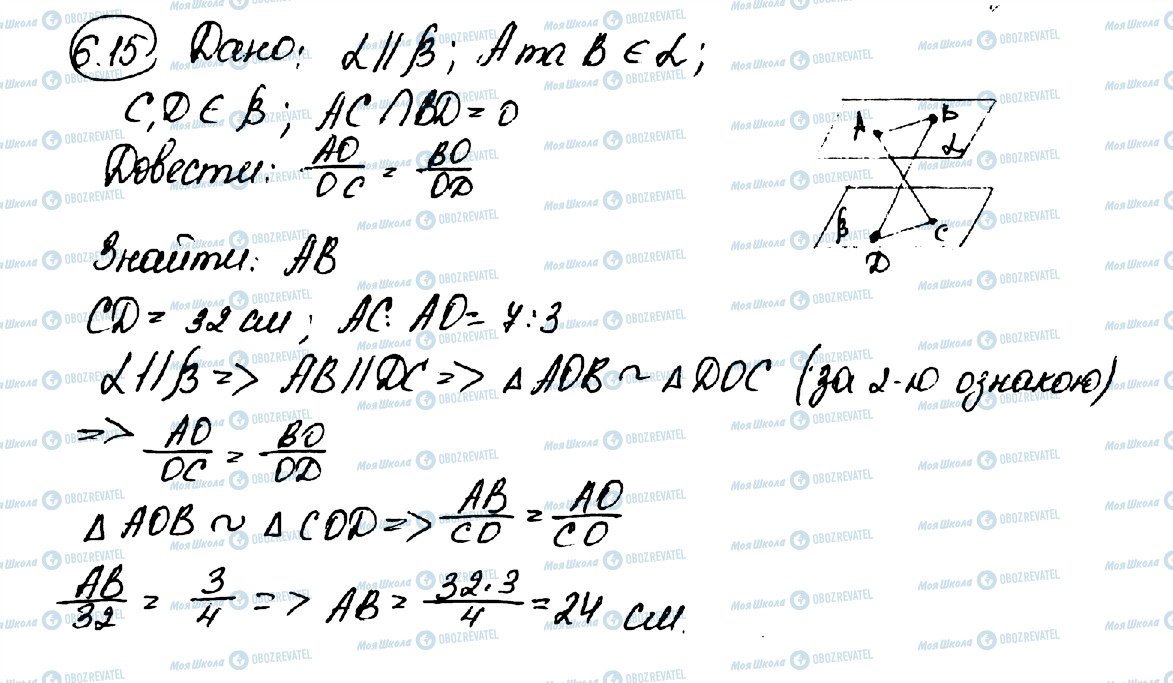 6.15. Дано: α || β; A та B ∈ α;
C, D ∈ β; AC ∩ BD = 0
Довести: AO/OC = BO/OD
Знайти: AB
CD = 32 см; AC: AO = 7:3
α || β => AB || DC => △ AOB ~ △ DOC (за 2-ю ознакою)
=> AO/OC = BO/OD
△ AOB ~ △ COD => AB/CO = AO/CO
AB/32 = 3/4 => AB = 32·3/4 = 24 см.
A
B
α
β
C
D
МояШкола OBOZREVATEL